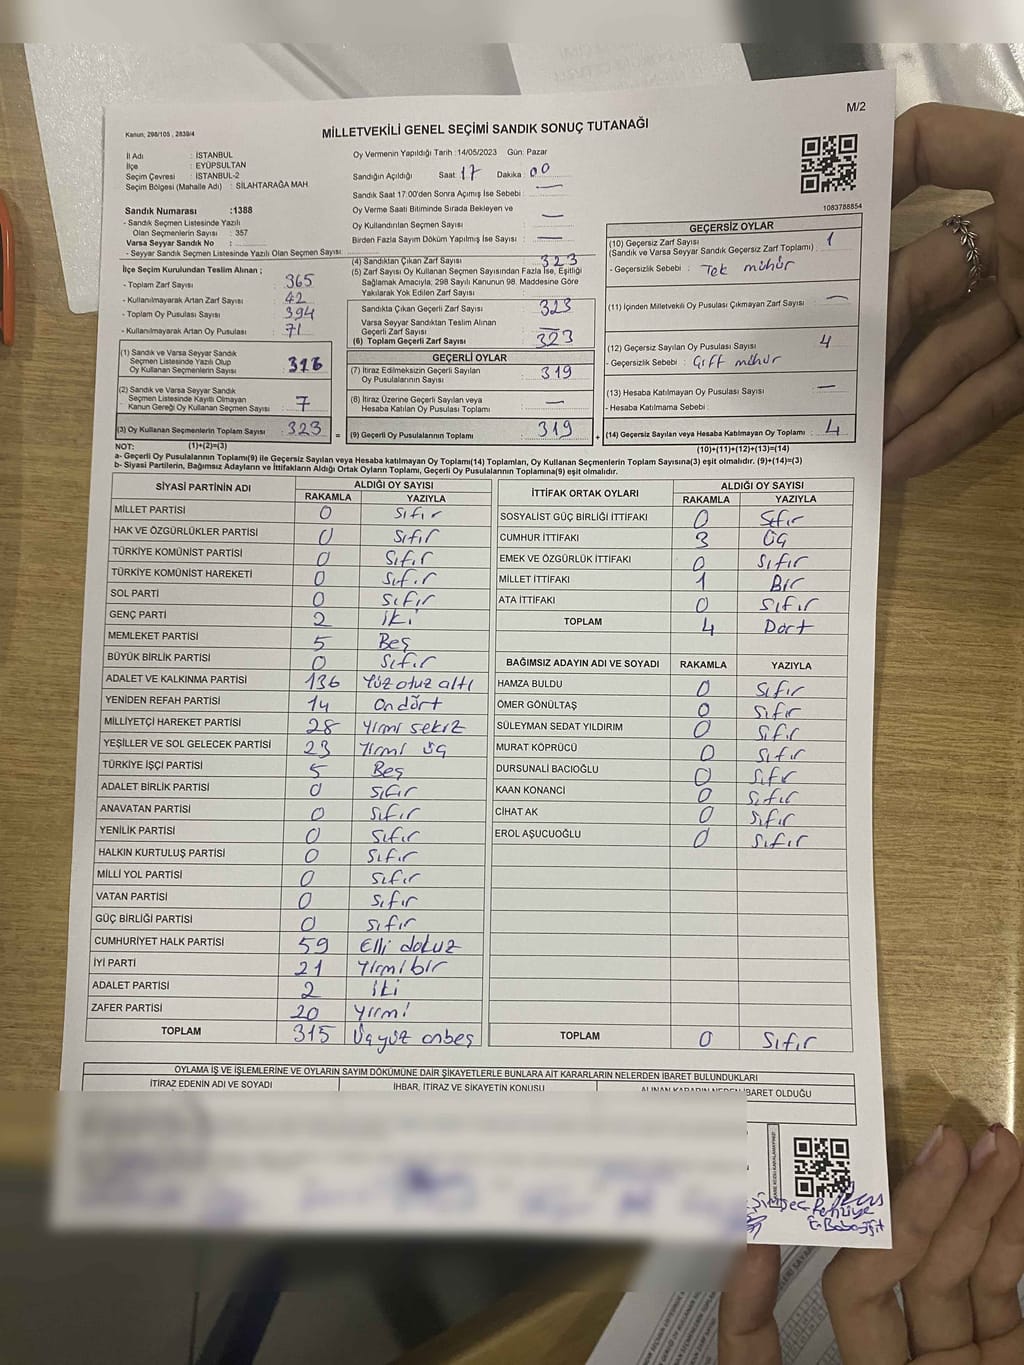 M/2
Kanun, 298/105 , 2839/4
MİLLETVEKİLİ GENEL SEÇİMİ SANDIK SONUÇ TUTANAĞI
İl Adı : İSTANBUL
İlçe : EYÜPSULTAN
Seçim Çevresi : İSTANBUL-2
Seçim Bölgesi (Mahalle Adı) : SİLAHTARAĞA MAH.
Oy Vermenin Yapıldığı Tarih :14/05/2023 Gün: Pazar
Sandığın Açıldığı Saat 17 Dakika 00
Sandık Saat 17:00'den Sonra Açılmış İse Sebebi : —
Oy Verme Saati Bitiminde Sırada Bekleyen ve
Oy Kullandırılan Seçmen Sayısı : —
Birden Fazla Sayım Döküm Yapılmış İse Sayısı : —
1083788854
Sandık Numarası :1388
- Sandık Seçmen Listesinde Yazılı
Olan Seçmenlerin Sayısı : 357
Varsa Seyyar Sandık No :
- Seyyar Sandık Seçmen Listesinde Yazılı Olan Seçmen Sayısı :
İlçe Seçim Kurulundan Teslim Alınan ;
- Toplam Zarf Sayısı : 365
- Kullanılmayarak Artan Zarf Sayısı : 42
- Toplam Oy Pusulası Sayısı : 394
- Kullanılmayarak Artan Oy Pusulası : 71
(1) Sandık ve Varsa Seyyar Sandık
Seçmen Listesinde Yazılı Olup
Oy Kullanan Seçmenlerin Sayısı : 316
(2) Sandık ve Varsa Seyyar Sandık
Seçmen Listesinde Kayıtlı Olmayan
Kanun Gereği Oy Kullanan Seçmen Sayısı : 7
(3) Oy Kullanan Seçmenlerin Toplam Sayısı : 323
(1)+(2)=(3)
(4) Sandıktan Çıkan Zarf Sayısı : 323
(5) Zarf Sayısı Oy Kullanan Seçmen Sayısından Fazla İse, Eşitliği
Sağlamak Amacıyla; 298 Sayılı Kanunun 98. Maddesine Göre
Yakılarak Yok Edilen Zarf Sayısı :
Sandıkta Çıkan Geçerli Zarf Sayısı : 323
Varsa Seyyar Sandıktan Teslim Alınan
Geçerli Zarf Sayısı : —
(6) Toplam Geçerli Zarf Sayısı : 323
GEÇERLİ OYLAR
(7) İtiraz Edilmeksizin Geçerli Sayılan
Oy Pusulalarının Sayısı : 319
(8) İtiraz Üzerine Geçerli Sayılan veya
Hesaba Katılan Oy Pusulası Toplamı : —
= (9) Geçerli Oy Pusulalarının Toplamı : 319 +
GEÇERSİZ OYLAR
(10) Geçersiz Zarf Sayısı : 1
(Sandık ve Varsa Seyyar Sandık Geçersiz Zarf Toplamı)
- Geçersizlik Sebebi : Tek mühür
(11) İçinden Milletvekili Oy Pusulası Çıkmayan Zarf Sayısı : —
(12) Geçersiz Sayılan Oy Pusulası Sayısı : 4
- Geçersizlik Sebebi : Çift mühür
(13) Hesaba Katılmayan Oy Pusulası Sayısı : —
- Hesaba Katılmama Sebebi :
(14) Geçersiz Sayılan veya Hesaba Katılmayan Oy Toplamı : 4
(10)+(11)+(12)+(13)=(14)
NOT:
a- Geçerli Oy Pusulalarının Toplamı(9) ile Geçersiz Sayılan veya Hesaba Katılmayan Oy Toplamı(14) Toplamları, Oy Kullanan Seçmenlerin Toplam Sayısına(3) eşit olmalıdır. (9)+(14)=(3)
b- Siyasi Partilerin, Bağımsız Adayların ve İttifakların Aldığı Ortak Oyların Toplamı, Geçerli Oy Pusulalarının Toplamına(9) eşit olmalıdır.
SİYASİ PARTİNİN ADI ALDIĞI OY SAYISI
RAKAMLA YAZIYLA
MİLLET PARTİSİ 0 Sıfır
HAK VE ÖZGÜRLÜKLER PARTİSİ 0 Sıfır
TÜRKİYE KOMÜNİST PARTİSİ 0 Sıfır
TÜRKİYE KOMÜNİST HAREKETİ 0 Sıfır
SOL PARTİ 0 Sıfır
GENÇ PARTİ 2 İki
MEMLEKET PARTİSİ 5 Beş
BÜYÜK BİRLİK PARTİSİ 0 Sıfır
ADALET VE KALKINMA PARTİSİ 136 Yüz otuz altı
YENİDEN REFAH PARTİSİ 14 Ondört
MİLLİYETÇİ HAREKET PARTİSİ 28 Yirmi sekiz
YEŞİLLER VE SOL GELECEK PARTİSİ 23 Yirmi üç
TÜRKİYE İŞÇİ PARTİSİ 5 Beş
ADALET BİRLİK PARTİSİ 0 Sıfır
ANAVATAN PARTİSİ 0 Sıfır
YENİLİK PARTİSİ 0 Sıfır
HALKIN KURTULUŞ PARTİSİ 0 Sıfır
MİLLİ YOL PARTİSİ 0 Sıfır
VATAN PARTİSİ 0 Sıfır
GÜÇ BİRLİĞİ PARTİSİ 0 Sıfır
CUMHURİYET HALK PARTİSİ 59 Elli dokuz
İYİ PARTİ 21 Yirmi bir
ADALET PARTİSİ 2 İki
ZAFER PARTİSİ 20 Yirmi
TOPLAM 315 Üçyüz onbeş
İTTİFAK ORTAK OYLARI ALDIĞI OY SAYISI
RAKAMLA YAZIYLA
SOSYALİST GÜÇ BİRLİĞİ İTTİFAKI 0 Sıfır
CUMHUR İTTİFAKI 3 Üç
EMEK VE ÖZGÜRLÜK İTTİFAKI 0 Sıfır
MİLLET İTTİFAKI 1 Bir
ATA İTTİFAKI 0 Sıfır
TOPLAM 4 Dört
BAĞIMSIZ ADAYIN ADI VE SOYADI RAKAMLA YAZIYLA
HAMZA BULDU 0 Sıfır
ÖMER GÖNÜLTAŞ 0 Sıfır
SÜLEYMAN SEDAT YILDIRIM 0 Sıfır
MURAT KÖPRÜCÜ 0 Sıfır
DURSUNALİ BACIOĞLU 0 Sıfır
KAAN KONANCI 0 Sıfır
CİHAT AK 0 Sıfır
EROL AŞUCUOĞLU 0 Sıfır
TOPLAM 0 Sıfır
OYLAMA İŞ VE İŞLEMLERİNE VE OYLARIN SAYIM DÖKÜMÜNE DAİR ŞİKAYETLERLE BUNLARA AİT KARARLARIN NELERDEN İBARET BULUNDUKLARI
İTİRAZ EDENİN ADI VE SOYADI İHBAR, İTİRAZ VE ŞİKAYETİN KONUSU ALINAN KARARIN NEDEN İBARET OLDUĞU